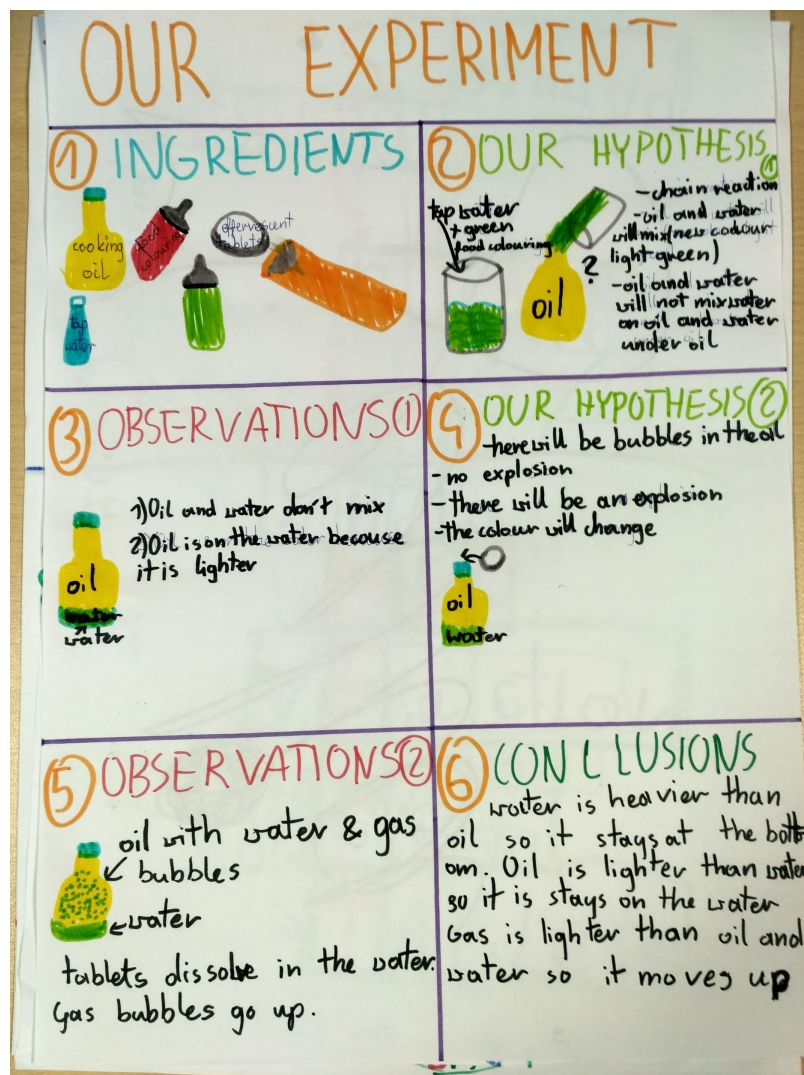 OUR EXPERIMENT
1 INGREDIENTS
cooking
oil
food
colouring
effervescent
tablets
tap
water
2 OUR HYPOTHESIS 1
tap water
+ green
food colouring
oil
?
- chain reaction
- oil and water
will mix (new colour
light green)
- oil and water
will not mix water
on oil and water
under oil
3 OBSERVATIONS 1
1) Oil and water don't mix
2) Oil is on the water because
it is lighter
oil
water
water
4 OUR HYPOTHESIS 2
- there will be bubbles in the oil
- no explosion
- there will be an explosion
- the colour will change
oil
water
5 OBSERVATIONS 2
oil with water & gas
bubbles
water
tablets dissolve in the water.
Gas bubbles go up.
6 CONCLUSIONS
water is heavier than
oil so it stays at the bott
om. Oil is lighter than water
so it is stays on the water
Gas is lighter than oil and
water so it moves up